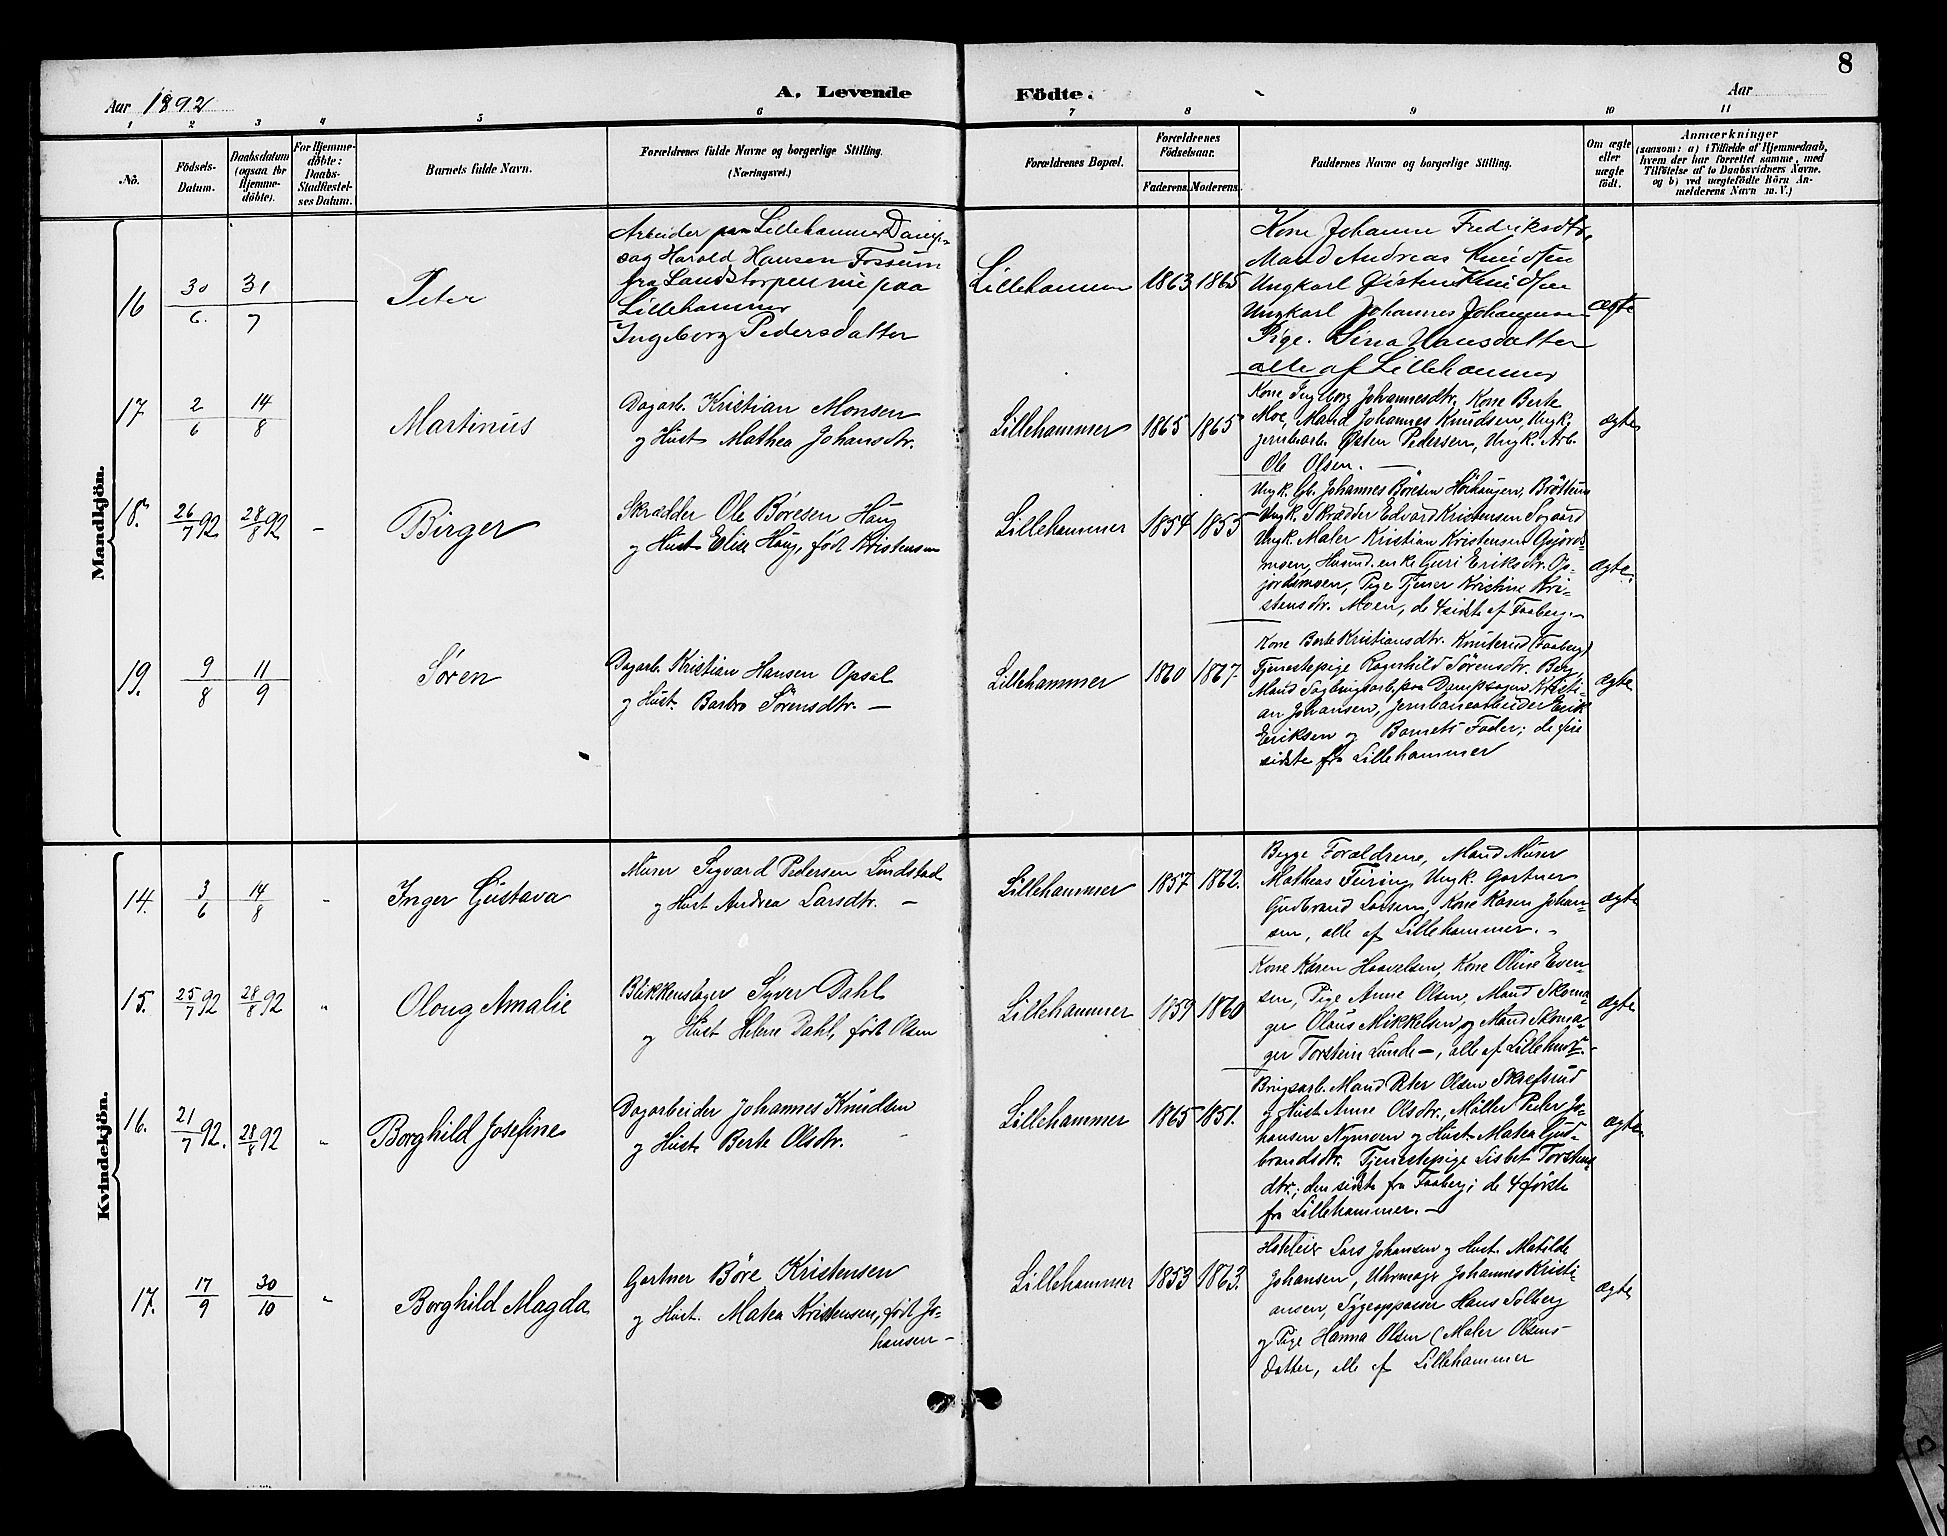 8
Aar 1892
A. Levende Födte.
Aar
1 2 3 4 5 6 7 8 9 10 11
No.
Födsels-
Datum.
Daabsdatum
(ogsaa for
Hjemme-
döbte).
For Hjemme-
döbte:
Daabs-
Stadfæstel-
ses Datum.
Barnets fulde Navn.
Forældrenes fulde Navne og borgerlige Stilling.
(Næringsvei.)
Forældrenes Bopæl.
Forældrenes
Födselsaar.
Faderens.
Moderens.
Faddernes Navne og borgerlige Stilling.
Om ægte
eller
uægte
født.
Anmærkninger
(saasom: a) i Tilfælde af Hjemmedaab,
hvem der har forrettet samme, med
Tilföielse af to Daabsvidners Navne.
og b) ved uægtefödte Börn An-
melderens Navn m. V.)
Mandkjön.
16
30/6.
31/7
Peter
Arbeider paa Lillehammer Damp-
sag Harold Hansen Fossum
fra Landstorpen nu paa
Lillehammer
Ingeborg Pedersdatter
Lillehammer
1863
1865
Kone Johanne Fredriksdtr,
Mand Andreas Knudsen
Ungkarl Østen Knudsen
Ungkarl Johannes Johannesen
Pige. Sina Hansdatter
alle af Lillehammer
ægte
17
2/6
14/8
Martinus
Dagarb. Kristian Monsen
og Hust. Mathea Johansdtr.
Lillehammer
1865
1865
Kone Ingeborg Johannesdtr. Kone Berte
Moe, Mand Johannes Knudsen, Ungk.
jernbearb. Østen Pedersen, Ungk. Arb.
Ole Olsen. —
ægte
18.
26/7 92
28/8 92
-
Birger
Skrædder Ole Böresen Haug
og Hust. Elise Haug, født Kristensen
Lillehammer
1854
1855
Ungk. Gb. Johannes Böresen Höihaugen, Bröttum
Ungk. Skrædder Edvard Kristensen Sogaard
Ungk. Maler Kristian Kristensen Opjords-
moen, Husmd.enke Guri Eriksdtr. Op-
jordsmoen, Pige Tjener Kristine Kri-
stensdtr. Moen, de 4 sidste af Faaberg. —
ægte.
19.
9/8
11/9
Søren
Dagarb. Kristian Hansen Opsal
og Hust. Barbro Sörensdtr. —
Lillehammer
1860
1867.
Kone Berte Kristiansdtr. Knuterud (Faaberg)
Tjenestepige Ragnhild Sørensdtr. Berg,
Mand Sagbrugsarb. paa Dampsagen Kristi-
an Johansen, Jernbanearbeider Erik
Eriksen og Barnets Fader; de fire
sidste fra Lillehammer
ægte
Kvindekjön.
14.
3/6
14/8
-
Inger Gustava
Murer Sigvard Pedersen Lundstad
og Hust. Andrea Larsdtr. —
Lillehammer
1857
1862.
Begge Forældrene, Mand Murer
Mathias Feiring, Ungk. Gartner
Gudbrand Larsen, Kone Karen Johan-
sen, alle af Lillehammer. -
ægte
15.
25/7 92
28/8 92
"
Oloug Amalie
Blikkenslager Syver Dahl
og Hust. Helene Dahl, født Olsen
Lillehammer
1859
1860
Kone Karen Haavelsen, Kone Oline Even-
sen, Pige Anne Olsen, Mand Skoma-
ger Olaus Mikkelsen og Mand Skoma-
ger Torstein Lunde —, alle af Lillehmr. -
ægte
16.
21/7 92.
28/8 92
"
Borghild Josefine
Dagarbeider Johannes Knudsen
og Hust. Berte Olsdtr. —
Lillehammer
1865
1851.
Brugsarb. Mand Peter Olsen Skrefsrud
og Hust. Anne Olsdtr., Møller Peder Jo-
hansen Nymoen og Hust. Matea Gud-
brandsdtr. Tjenestepige Lisbet Torstens
dtr.; den sidste fra Faaberg; de 4 første
fra Lillehammer. —
ægte.
17.
17/9
30/10
"
Borghild Magda
Gartner Böre Kristensen
og Hust. Matea Kristensen, født Jo-
hansen —
Lillehammer
1853
1863.
Hoteleier Lars Johansen og Hust. Matilde
Johansen, Uhrmager Johannes Kristi-
ansen, Sygepasser Hans Solberg
og Pige Hanna Olsen (Maler Olsens
Datter, alle af Lillehammer
ægte